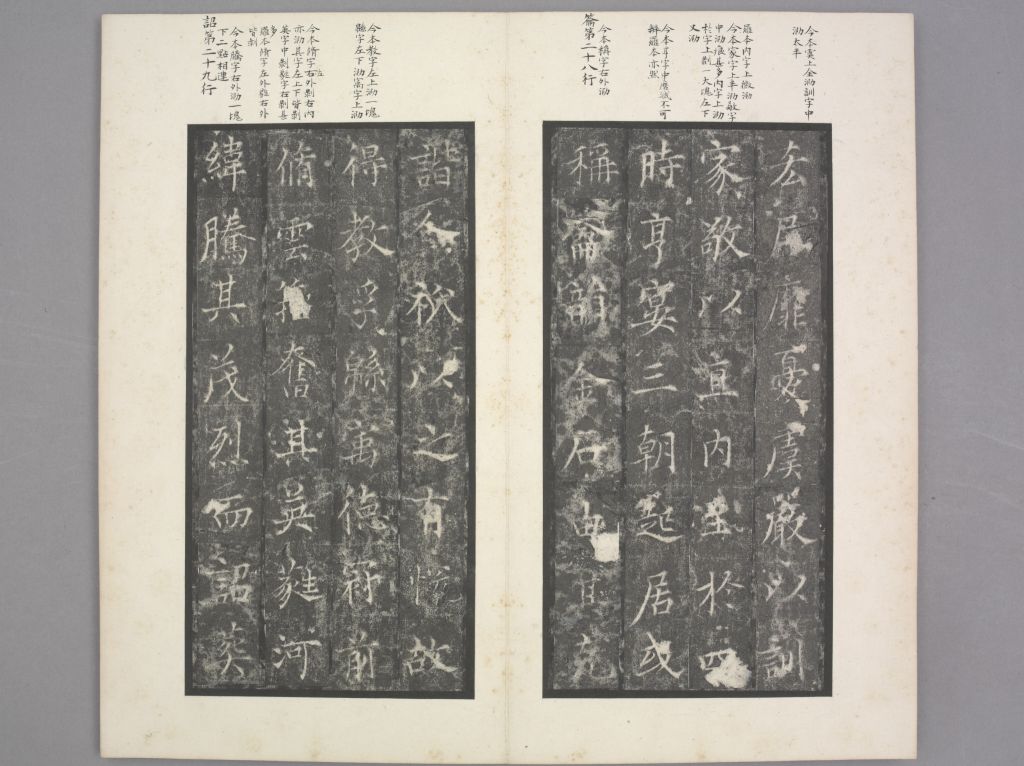 今本虞上全泐訓字中
泐太半
羅本内字上微泐
今本家字上半泐敬字
中泐痕甚多内字上泐
於字上剝一大塊左下
又泐
今本耳字中磨滅不可
辨羅本亦然
今本稱字右外泐
龠第二十八行
居靡憂虞嚴以訓
家敬以宜内於四
時亨宴三朝起居或
稱龠韶金石克
諧人以之有故
得教孚緜寓德冠前
脩雲奮其英蕤河
緯騰其茂烈而詔
今本教字左上泐一塊
緜字左下泐寓字上泐
今本脩字右外剝右内
亦泐其字左上下皆剝
英字中剝蕤字右剝甚
多
羅本脩字左外蕤右外
皆剝
今本騰字右外泐一塊
下二點相連
詔第二十九行